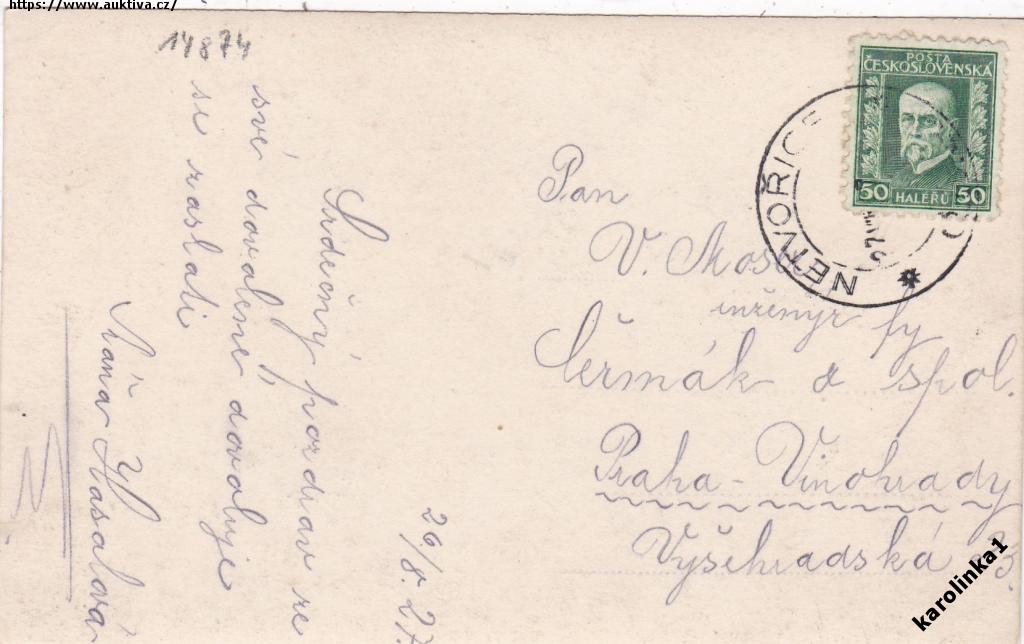 https://www.auktiva.cz/
14874
POŠTA
ČESKOSLOVENSKÁ
50 HALÉŘŮ 50
NETVOŘICE
Pan
V. Mose
inženýr fy
Čermák & spol.
Praha - Vinohrady
Vyšehradská
26/8. 27.
Srdečný pozdrav ze
své dovolené dovoluje
si zaslati
Máňa Hasalová
karolinka1